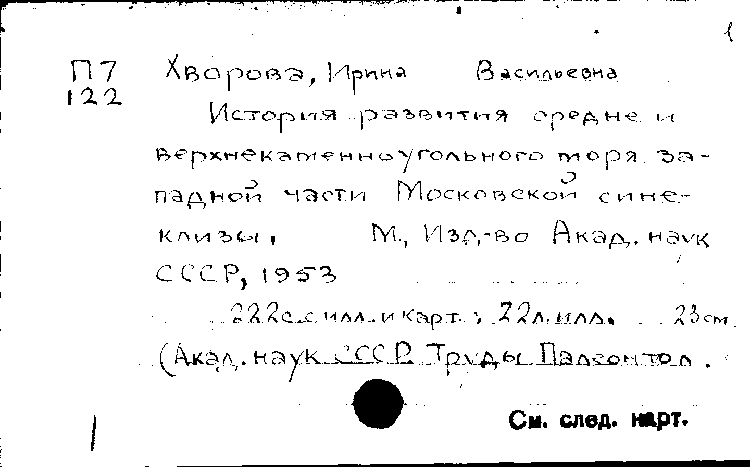 1
П7 Хворова, Ирина Васильевна
122
История развития средне и
верхнекаменноугольного моря за-
падной части Московской сине-
клизы. М., Изд-во Акад. наук
СССР, 1953
222с. с илл. и карт.; 22л. илл. 23см.
(Акад. наук СССР. Труды Палеонтол.
См. след. карт.